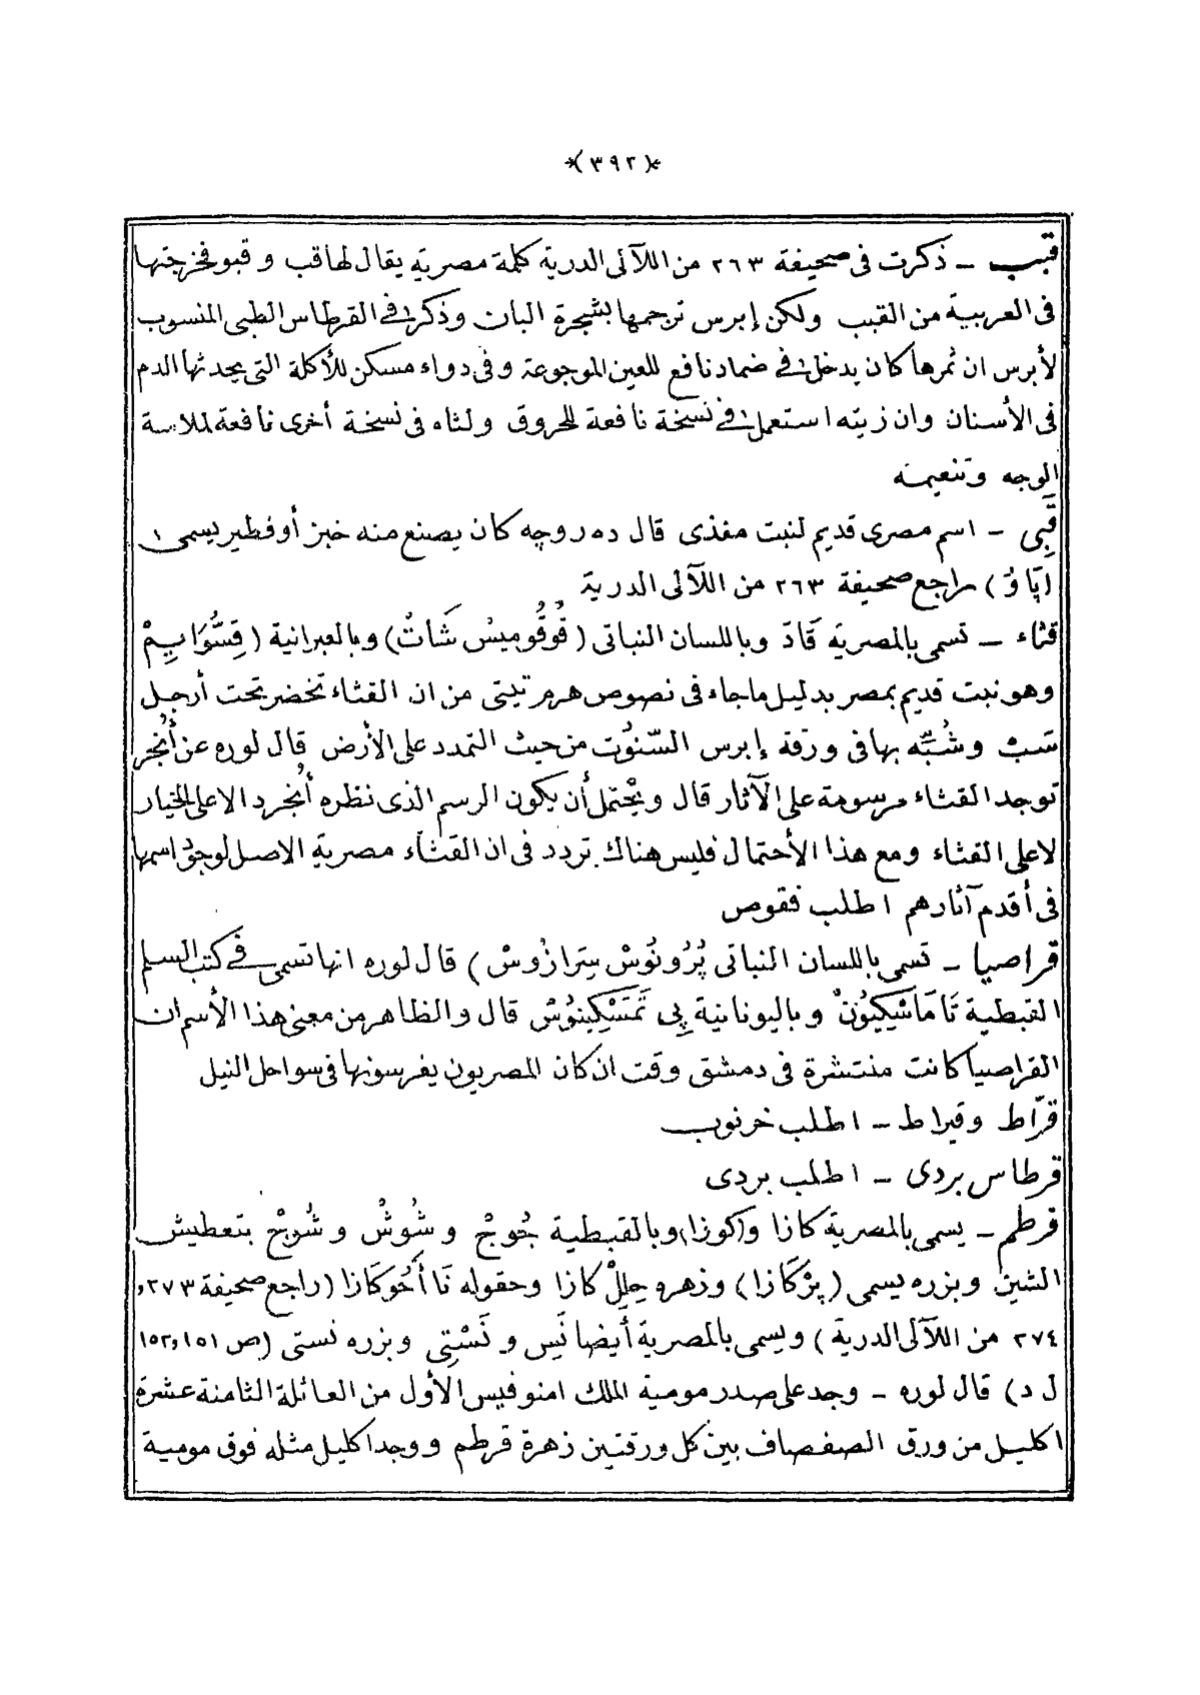 ﴿٣٩٢﴾
قبب ــ ذكرت فى صحيفة ٢٦٣ من اللآلى الدرية كلمة مصرية يقال لها قب و قبو فخرجتها
فى العربية من القبب ولكن إبرس ترجمها بشجرة البان وذكر فى القرطاس الطبى المنسوب
لأبرس ان ثمرها كان يدخل فى ضماد نافع للعين الموجوعة وفى دواء مسكن للأكلة التى يحدثها الدم
فى الأسنان وان زيته استعمل فى نسخة نافعة للحروق ولثاه فى نسخة أخرى نافعة لملاسة
الوجه وتنعيمه
قَبِى ــ اسم مصرى قديم لنبت مغذى قال ده روچه كان يصنع منه خبز أو فطير يسمى
(پَاوُ) راجع صحيفة ٢٦٣ من اللآلى الدرية
قثاء ــ تسمى بالمصرية قَادَ وباللسان النباتى (قُوقُومِيسْ شَاتْ) وبالعبرانية (قِسُّوَابِيمْ
وهو نبت قديم بمصر بدليل ماجاء فى نصوص هرم تيتى من ان القثاء تخضر تحت أرجل
سَبْ وشُبِّه بها فى ورقة إبرس السّنوُت من حيث التمدد على الأرض قال لوره عن أُنجر
توجد القثاء مرسومة على الآثار قال ويحتمل أن يكون الرسم الذى نظره أُنجر دالا على الخيار
لا على القثاء ومع هذا الأحتمال فليس هناك تردد فى ان القثاء مصرية الاصل لوجود اسمها
فى أقدم آثارهم اطلب فقوص
قراصيا ــ تسمى باللسان النباتى پْرُونُوسْ سِرَازُوسْ) قال لوره انها تسمى فى كتب السلم
القبطية تَامَاسْكِينُونْ وباليونانية پى تَمَسْكِينُوسْ قال والظاهر من معنى هذا الأسم ان
القراصيا كانت منتشرة فى دمشق وقت ان كان المصريون يغرسونها فى سواحل النيل
قرّاط وقيراط ــ اطلب خرنوب
قرطاس بردى ــ اطلب بردى
قرطم ــ يسمى بالمصرية كازا و(كوزا) وبالقبطية جُوجْ و شُوشْ و شُوجْ بتعطيش
الشين وبزره يسمى (پرْكَازا) وزهره حِلِلْ كازا وحقوله نَا أَحُوكَازا (راجع صحيفة ٢٧٣,
٢٧٤ من اللآلى الدرية) ويسمى بالمصرية أيضا نَسِ و نَسْتِى وبزره نستى (ص ١٥١,١٥٢
ل د) قال لوره ــ وجد على صدر مومية الملك امنوفيس الأول من العائلة الثامنة عشرة
اكليل من ورق الصفصاف بين كل ورقتين زهرة قرطم ووجد اكليل مثله فوق مومية